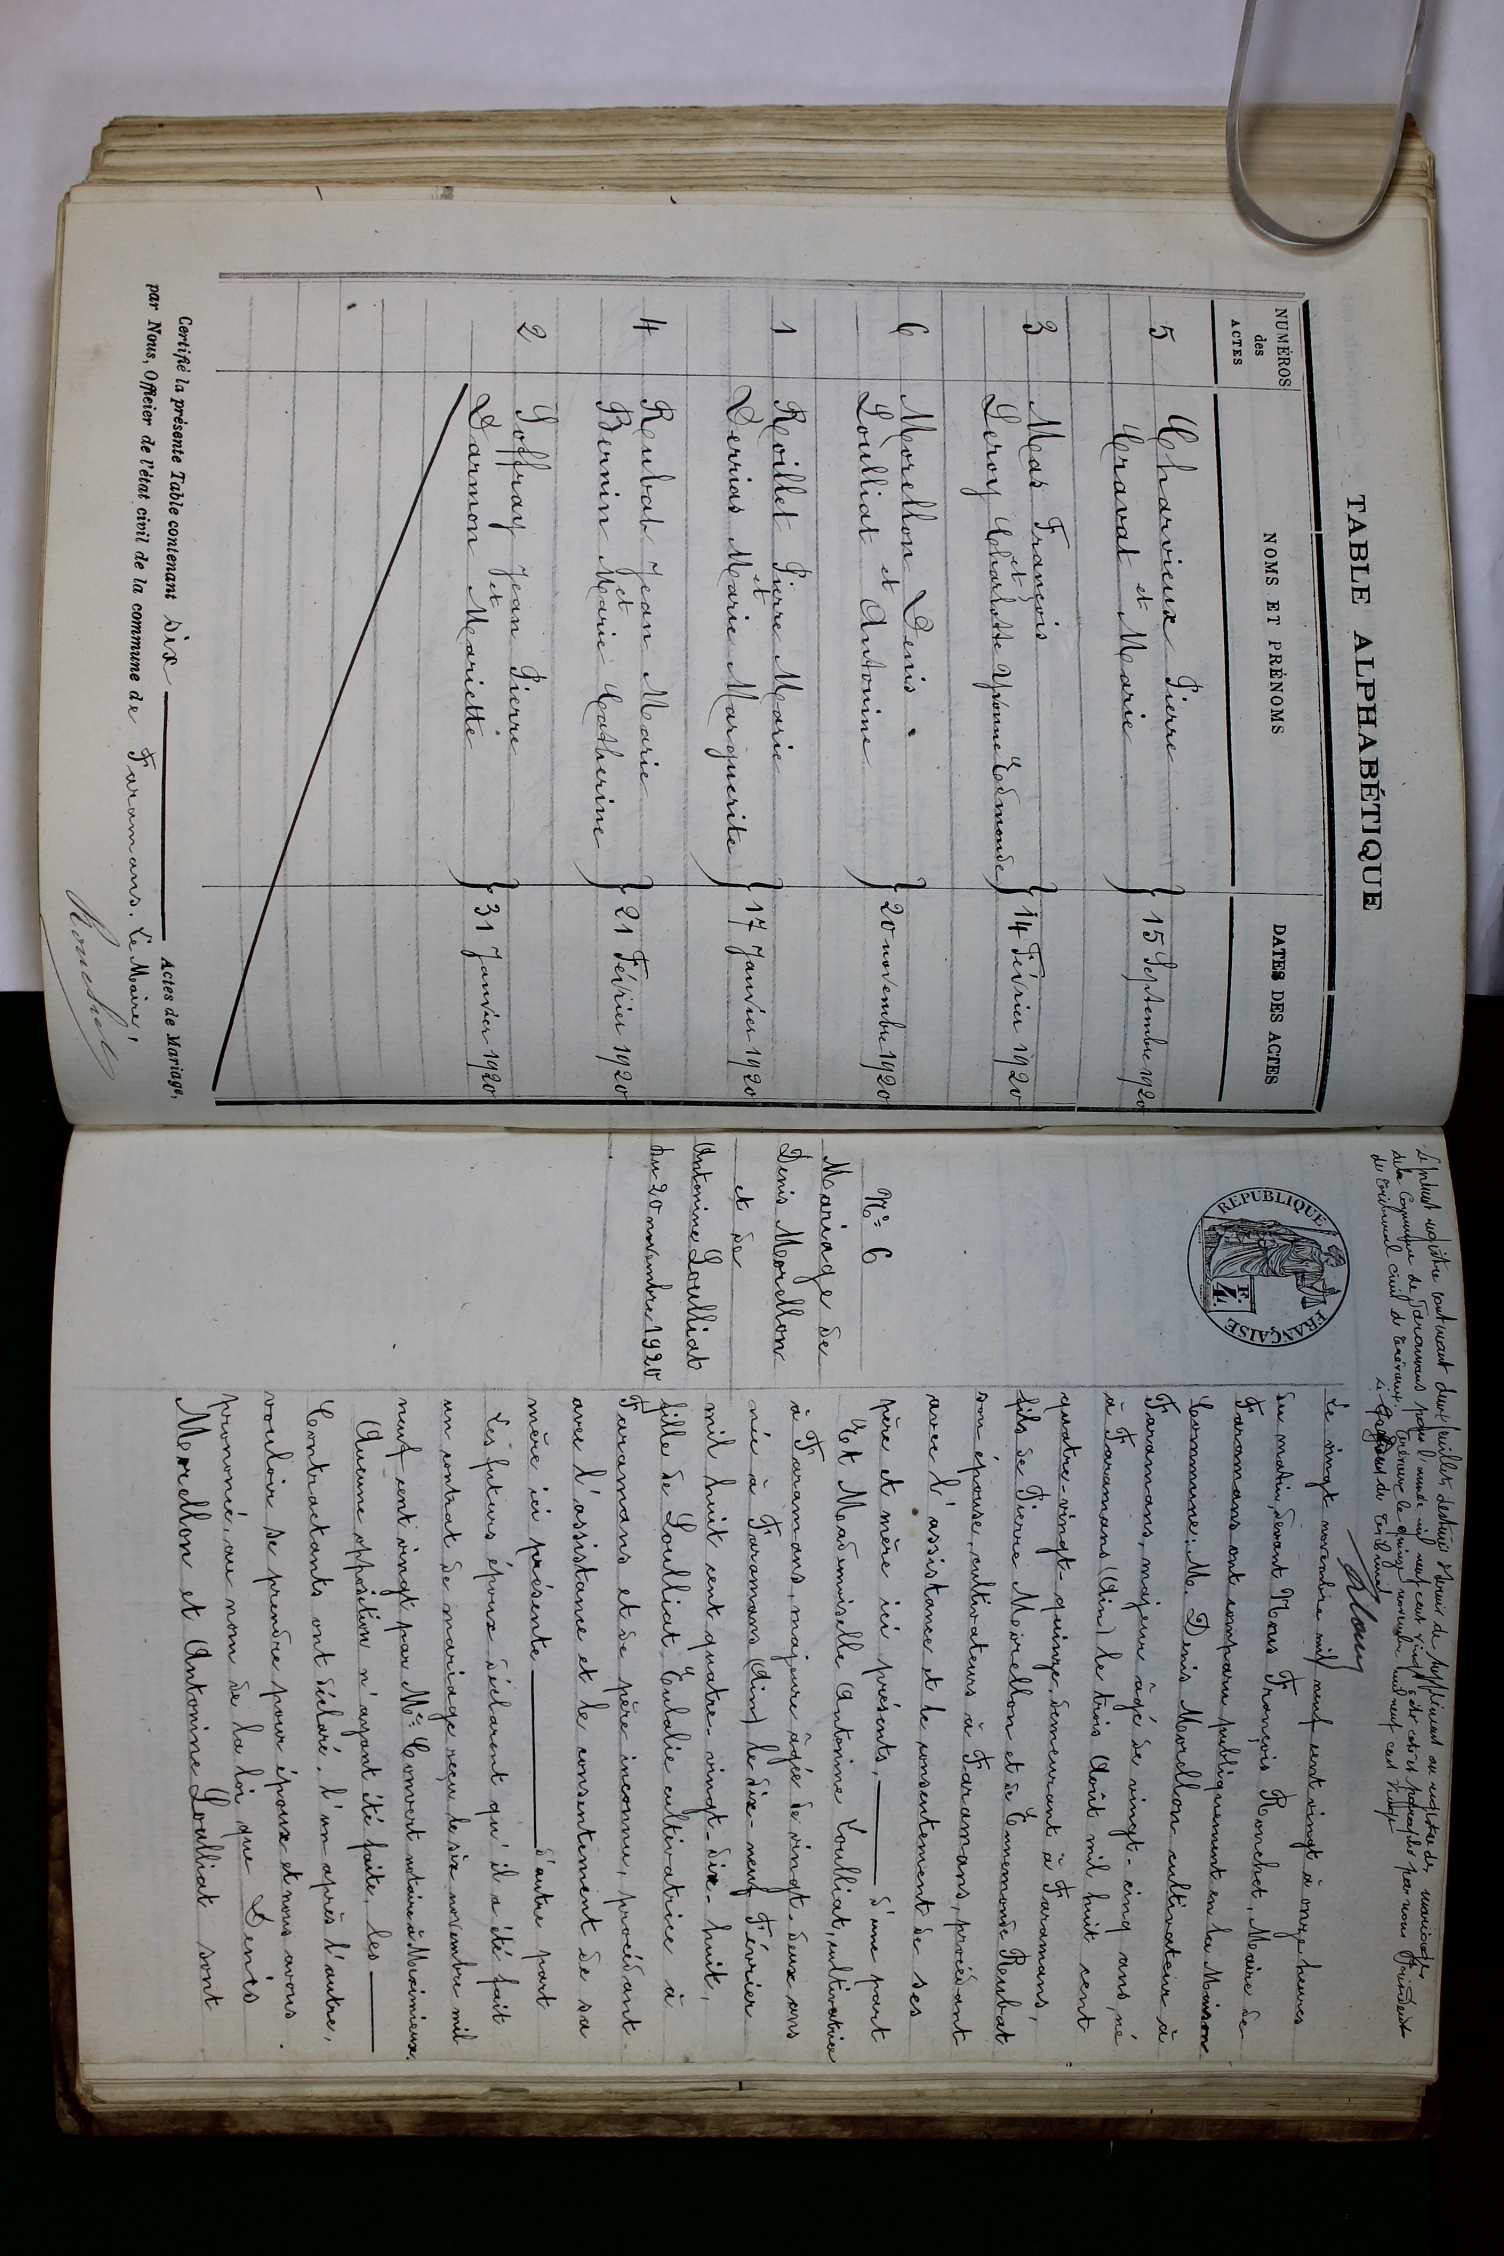 TABLE ALPHABÉTIQUE
NUMÉROS des ACTES
NOMS ET PRÉNOMS
DATES DES ACTES
5 Charvieux Pierre
et
Cravat Marie } 15 Septembre 1920
3 Mas François
et
Leroy Charlotte Yvonne Edmonde } 14 Février 1920
6 Morellon Denis
et
Loulliat Antonine } 20 novembre 1920
1 Roillet Pierre Marie
et
Derrias Marie Marguerite } 17 Janvier 1920
4 Reubat Jean Marie
et
Bernin Marie Catherine } 21 Février 1920
2 Soffray Jean Pierre
et
Darmon Mariette } 31 Janvier 1920
Certifié la présente Table contenant six Actes de Mariage,
par Nous, Officier de l'état civil de la commune de Faramans. Le Maire,
Ronchet
Le présent registre contenant deux feuillets destiné à servir de supplément au registre des mariages
de la Commune de Faramans pour l'année mil neuf cent vingt a été coté et paraphé par nous Président
du Tribunal civil de Trévoux. Trévoux le quinze novembre mil neuf cent vingt
RÉPUBLIQUE FRANÇAISE
F. 4.
N° 6
Mariage de
Denis Morellon
et de
Antonine Loulliat
du 20 novembre 1920
Le vingt novembre mil neuf cent vingt à onze heures
du matin, devant Nous François Ronchet, Maire de
Faramans ont comparu publiquement en la Maison
Commune: M Denis Morellon cultivateur à
Faramans, majeur âgé de vingt-cinq ans, né
à Faramans (Ain) le trois Août mil huit cent
quatre-vingt-quinze, demeurant à Faramans,
fils de Pierre Morellon et de Ennemonde Reubat
son épouse, cultivateurs à Faramans, procédant
avec l'assistance et le consentement de ses
père et mère ici présents, d'une part
Et Mademoiselle Antonine Loulliat, cultivatrice
à Faramans, majeure âgée de vingt-deux ans
née à Faramans (Ain) le dix-neuf Février
mil huit cent quatre-vingt-dix-huit,
fille de Loulliat Eulalie cultivatrice à
Faramans et de père inconnu, procédant
avec l'assistance et le consentement de sa
mère ici présente d'autre part
Les futurs époux déclarent qu'il a été fait
un contrat de mariage reçu le six novembre mil
neuf cent vingt par Me Convert notaire à Meximieux.
Aucune opposition n'ayant été faite, les
Contractants ont déclaré, l'un après l'autre,
vouloir se prendre pour époux et nous avons
prononcé, au nom de la loi que Denis
Morellon et Antonine Loulliat sont